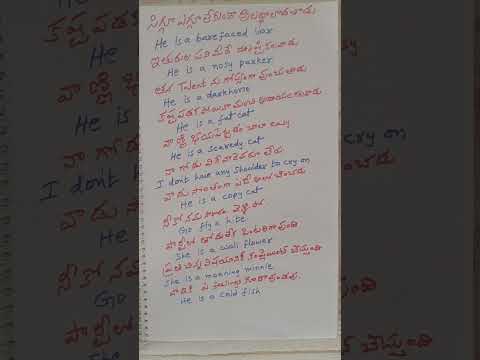 సిగ్గూ ఎగ్గూ లేకుండా అబద్దాలాడుతాడు
He is a barefaced liar
ఇతరుల పనిమీద దృష్టి కలవాడు
He is a nosy parker
తన Talent ను గోప్యంగా వుంచుతాడు
He is a darkhorse
కష్టపడకపోయినా మంచి ఆదాయం గలవాడు
He is a fat cat
వాణ్ణి భయపెట్టడం చాలా
He is a scaredy cat
నా గోడు వినేవాడెవడూ లేడు
I dont have any shoulder to cry on
వాడు సొంతంగా ఏదీ
He is a copy cat
నీకో నమస్కారం
Go fly a kite
పార్టీలో తోడులేక ఒంటరిగా వుంది
She is a wall flower
ప్రతి చిన్న విషయానికీ కంప్లైంట్ చేస్తుంది
She is a moaning minnie
వాడికి ఏ feelings వుండవు.
He is a cold fish